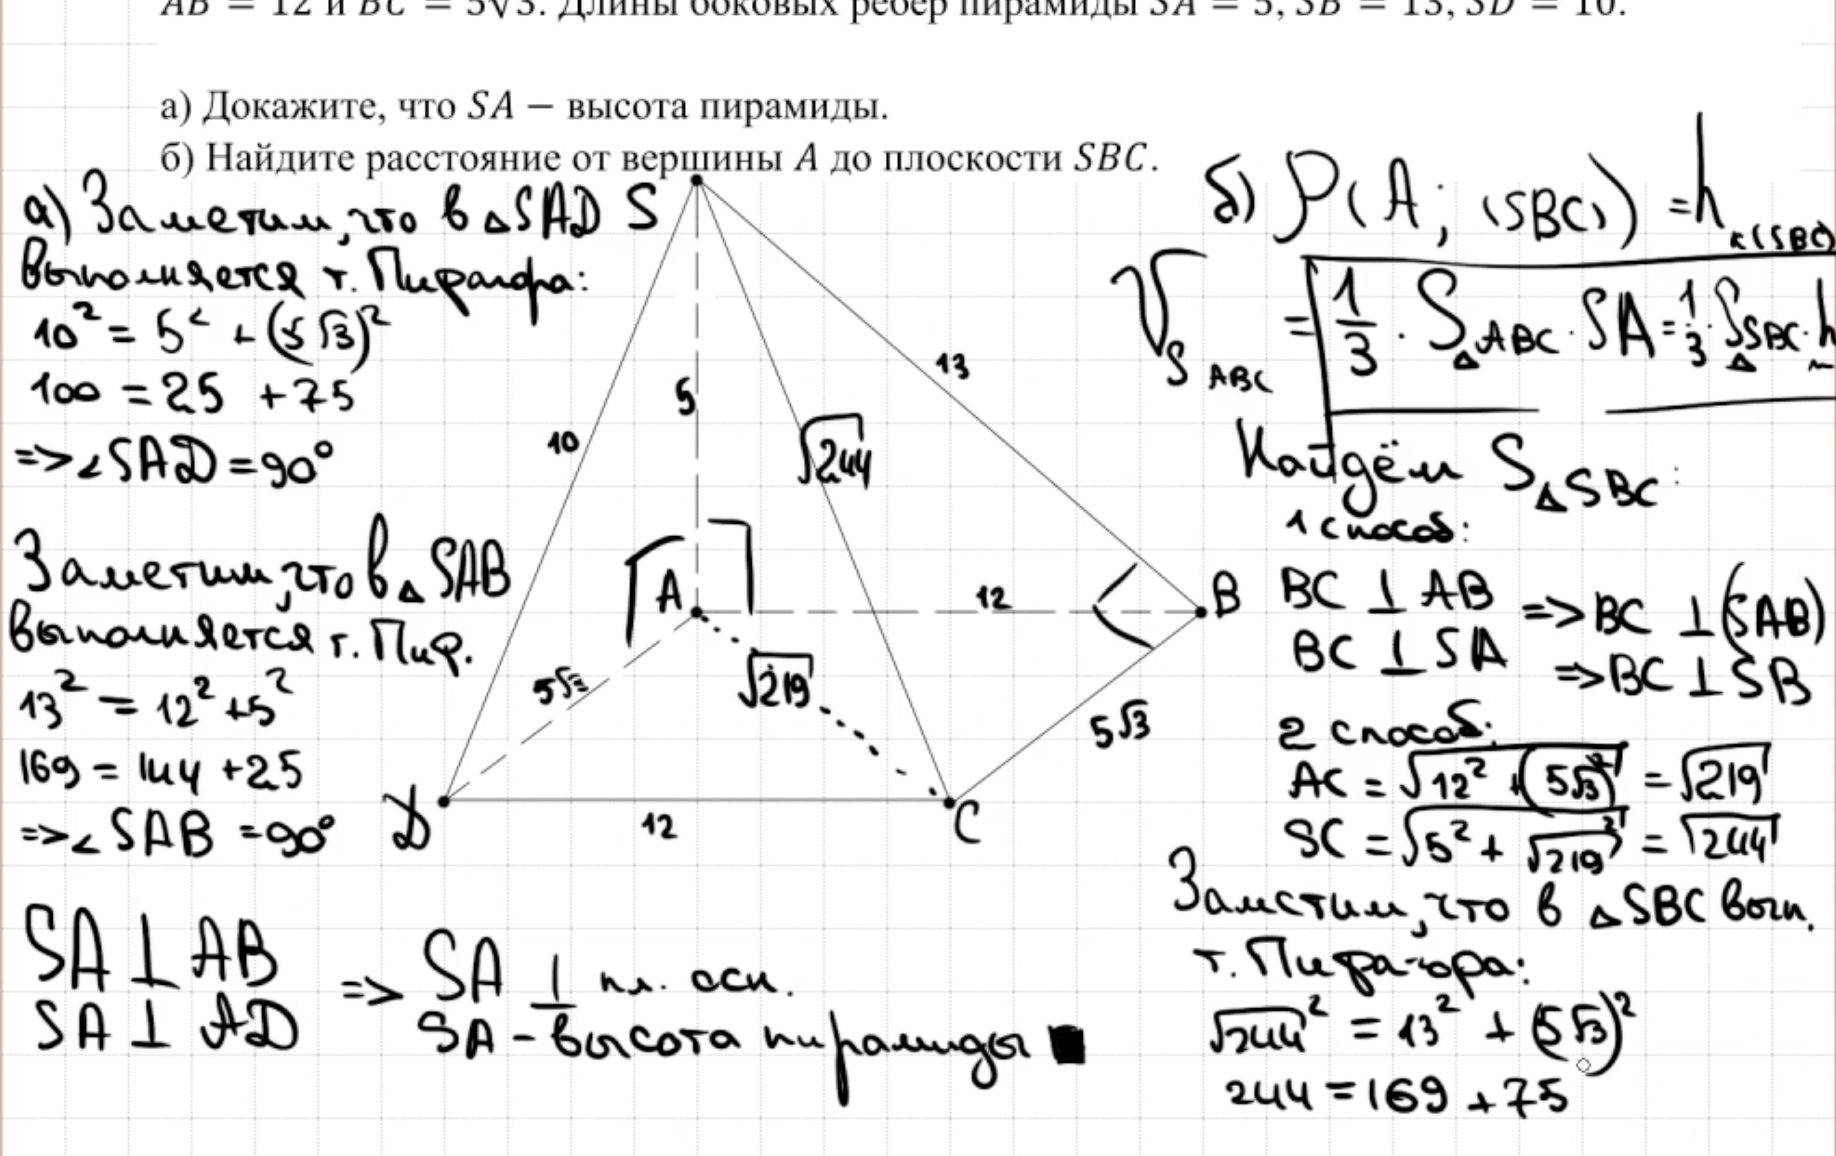 AB = 12 и BC = 5√3. Длины боковых рёбер пирамиды SA = 5, SB = 13, SD = 10.
а) Докажите, что SA – высота пирамиды.
б) Найдите расстояние от вершины A до плоскости SBC.
а) Заметим, что в △SAD
выполняется т. Пифагора:
10² = 5² + (5√3)²
100 = 25 + 75
=> ∠SAD = 90°
Заметим, что в △SAB
выполняется т. Пиф.
13² = 12² + 5²
169 = 144 + 25
=> ∠SAB = 90°
SA ⊥ AB
SA ⊥ AD
=> SA ⊥ пл. осн.
SA - высота пирамиды ■
S
13
5
10
√244
A
12
B
5√3
√219
5√3
D
12
C
б) ρ(A; (SBC)) = h к (SBC)
V SABC = 1/3 · S△ABC · SA = 1/3 · S△SBC · h
Найдём S△SBC:
1 способ:
BC ⊥ AB
BC ⊥ SA
=> BC ⊥ (SAB)
=> BC ⊥ SB
2 способ:
AC = √12² + (5√3)² = √219
SC = √5² + √219² = √244
Заметим, что в △SBC вып.
т. Пифагора:
√244² = 13² + (5√3)²
244 = 169 + 75